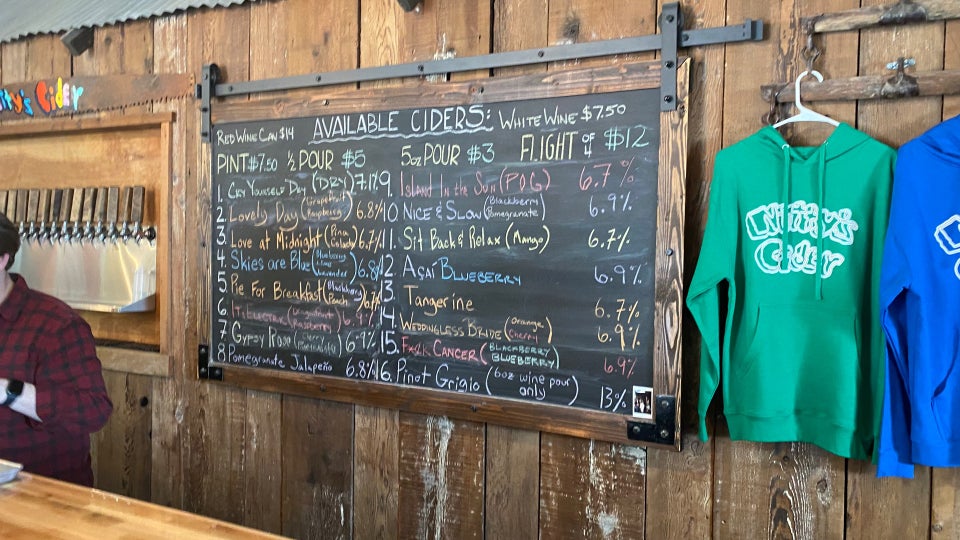 Cider
RED WINE CAN $14 AVAILABLE CIDERS: WHITE WINE $7.50
PINT $7.50 ½ POUR $5 5oz POUR $3 FLIGHT OF $12
1. CRY YOURSELF DRY (DRY) 7.1%
2. LOVELY DAY (Grapefruit Raspberry) 6.8%
3. LOVE AT MIDNIGHT (Pina Colada) 6.7%
4. SKIES ARE BLUE (Blueberry Lime Lavender) 6.8%
5. PIE FOR BREAKFAST (Blackberry Peach) 6.7%
6. IT'S ELECTRIC (Dragonfruit Raspberry) 6.9%
7. GYPSY ROSE 6.9%
8. Pomegranate Jalapeño 6.8%
9. ISLAND IN THE SUN (POG) 6.7%
10. NICE & SLOW (Blackberry Pomegranate) 6.9%
11. SIT BACK & RELAX (Mango) 6.7%
12. AÇAÍ BLUEBERRY 6.9%
13. TANGERINE 6.7%
14. WEDDINGLESS BRIDE (Orange Cherry) 6.9%
15. CANCER (BLACKBERRY BLUEBERRY) 6.9%
16. PINOT GRIGIO (6oz wine pour only) 13%
Cider